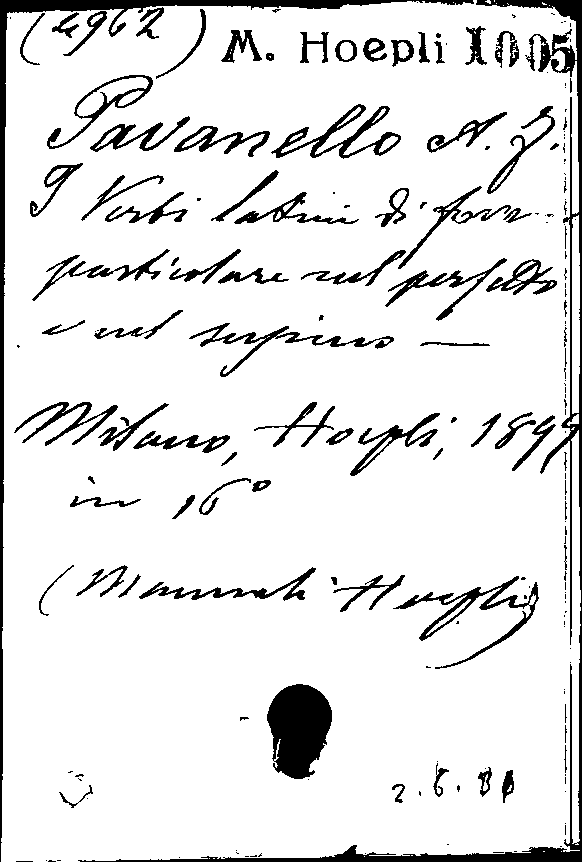 (4962) M. Hoepli 1005
Pavanello A. F.
I Verbi latini di form
particolare nel perfetto
e nel supino —
Milano, Hoepli, 1899
in 16°
(Manuali Hoepli)